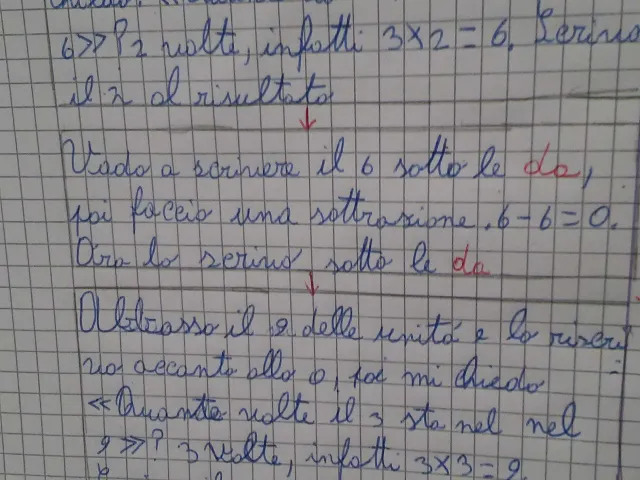 6>>? 2 volte, infatti 3×2=6. Scrivo
il 2 al risultato
Vado a scrivere il 6 sotto le da,
poi faccio una sottrazione. 6-6=0.
Ora lo scrivo sotto le da
Abbasso il 9 delle unità e lo riscri
vo accanto allo 0, poi mi chiedo
<<Quante volte il 3 sta nel nel
9>>? 3 volte, infatti 3×3=9